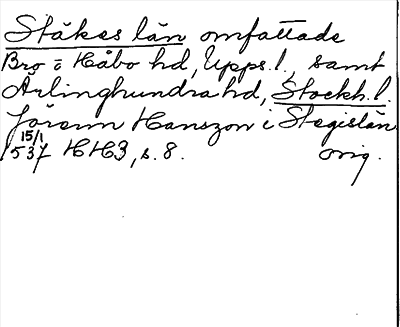 Stäkes län omfattade
Bro o Håbo hd, Upps. l., samt
Ärlinghundra hd, Stockh. l.
Jörenn Hanszon i Stegislän
15/1
1537 HH3, s. 8. orig.